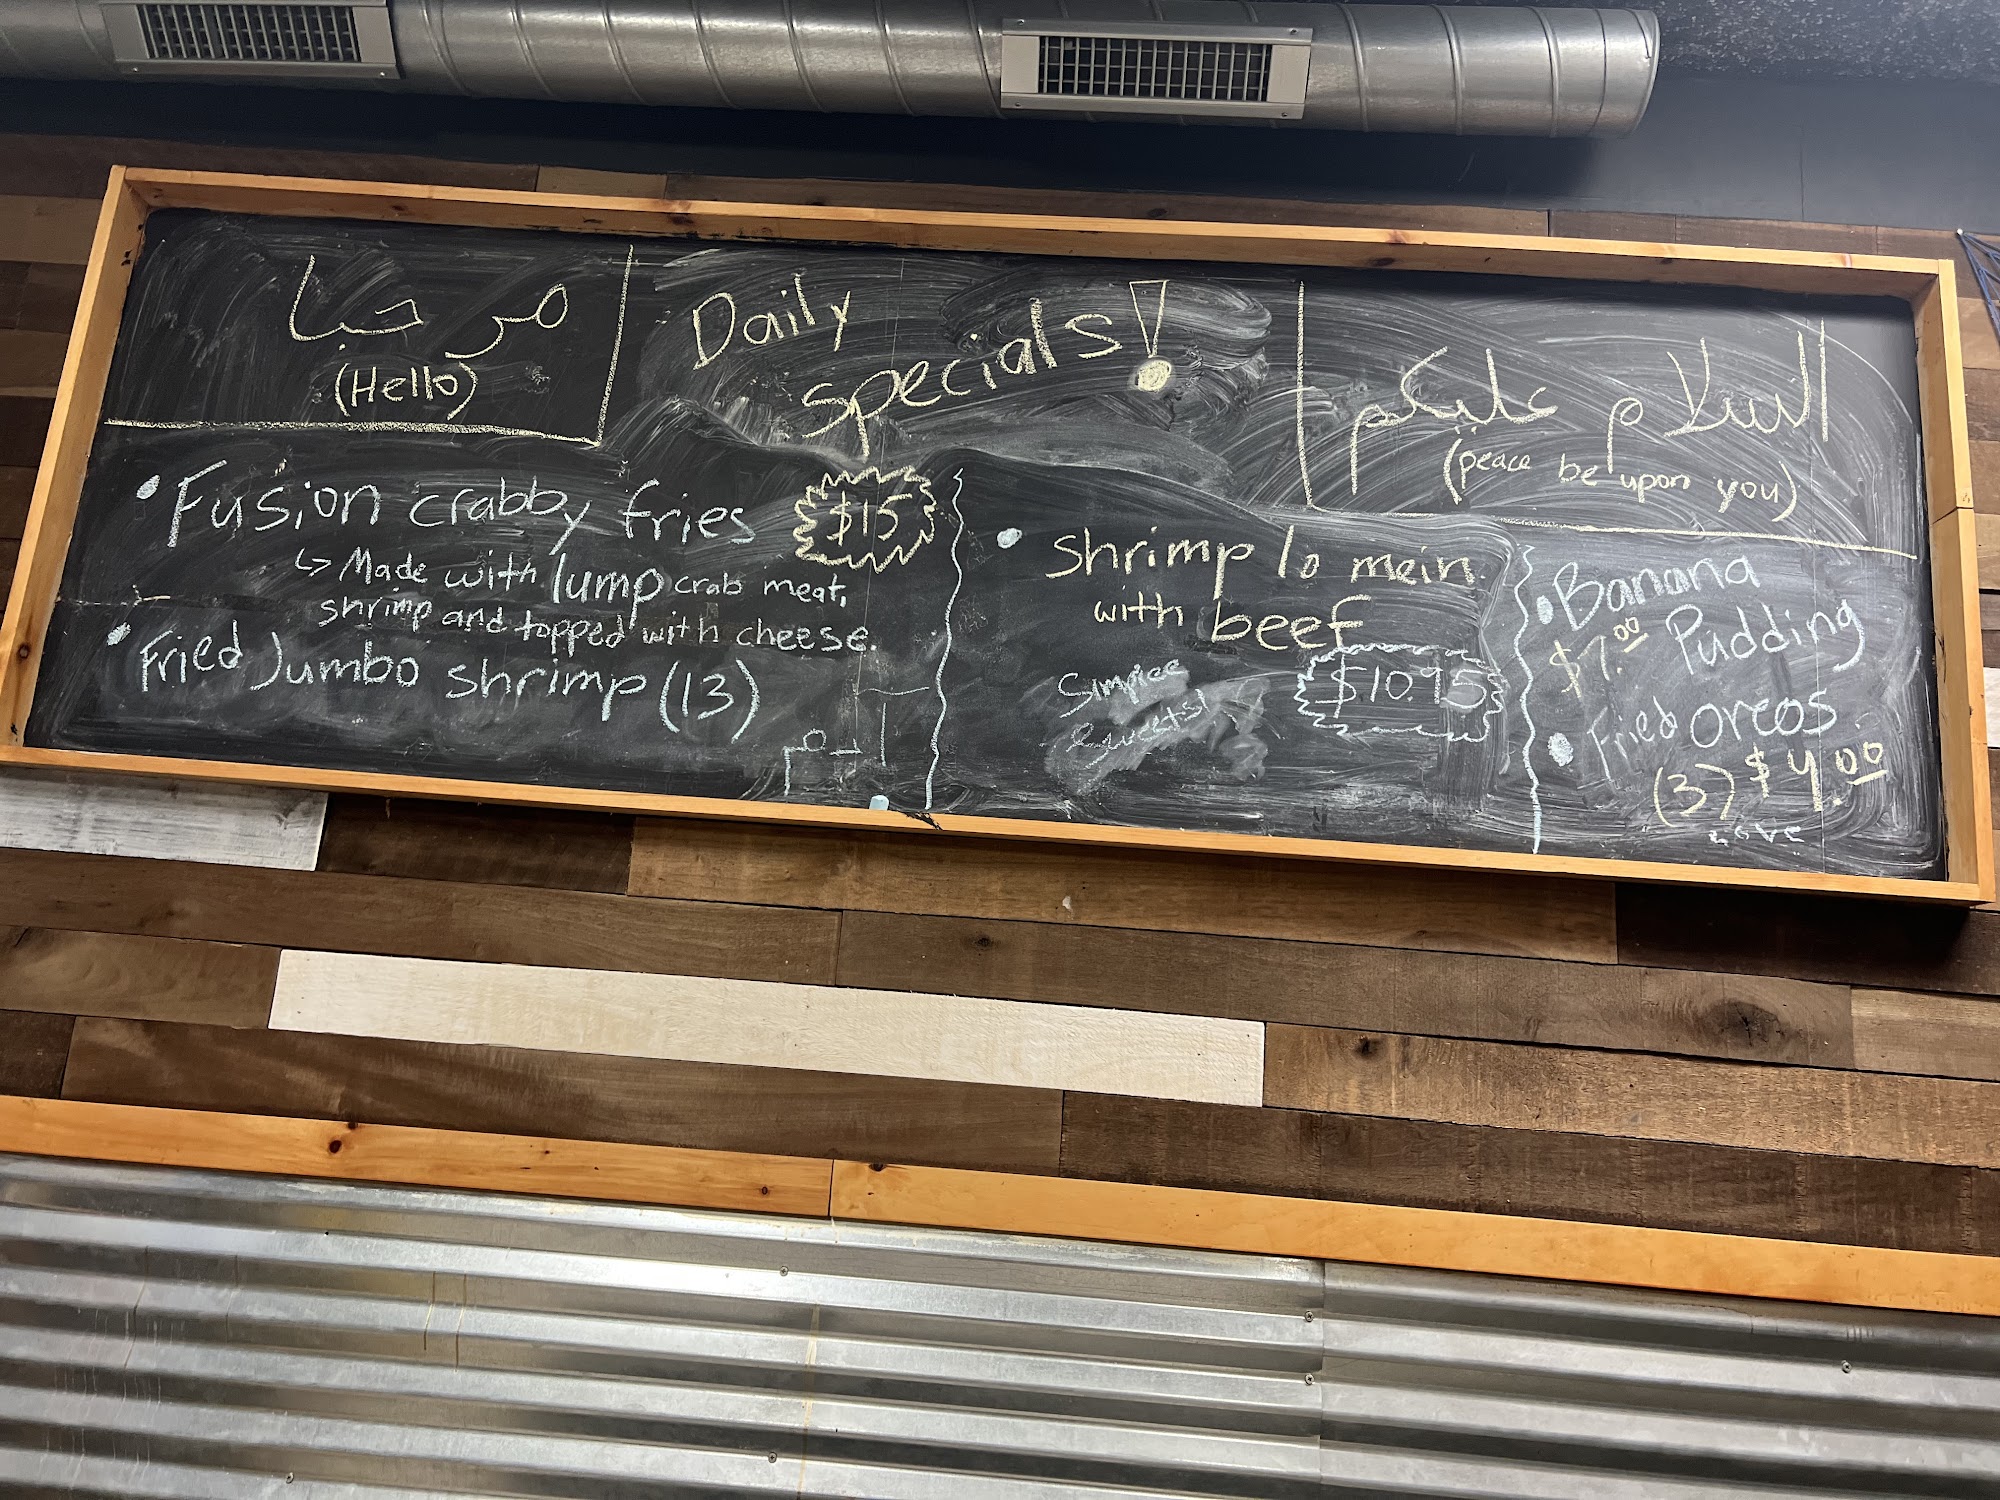 مرحبا
(Hello)
Daily
specials!
السلام عليكم
(peace be upon you)
• Fusion crabby fries $15
↳ Made with lump crab meat,
shrimp and topped with cheese.
• Fried Jumbo shrimp (13)
• Shrimp lo mein
with beef
$10.95
• Banana
$7.00 Pudding
• Fried oreos
(3) $4.00